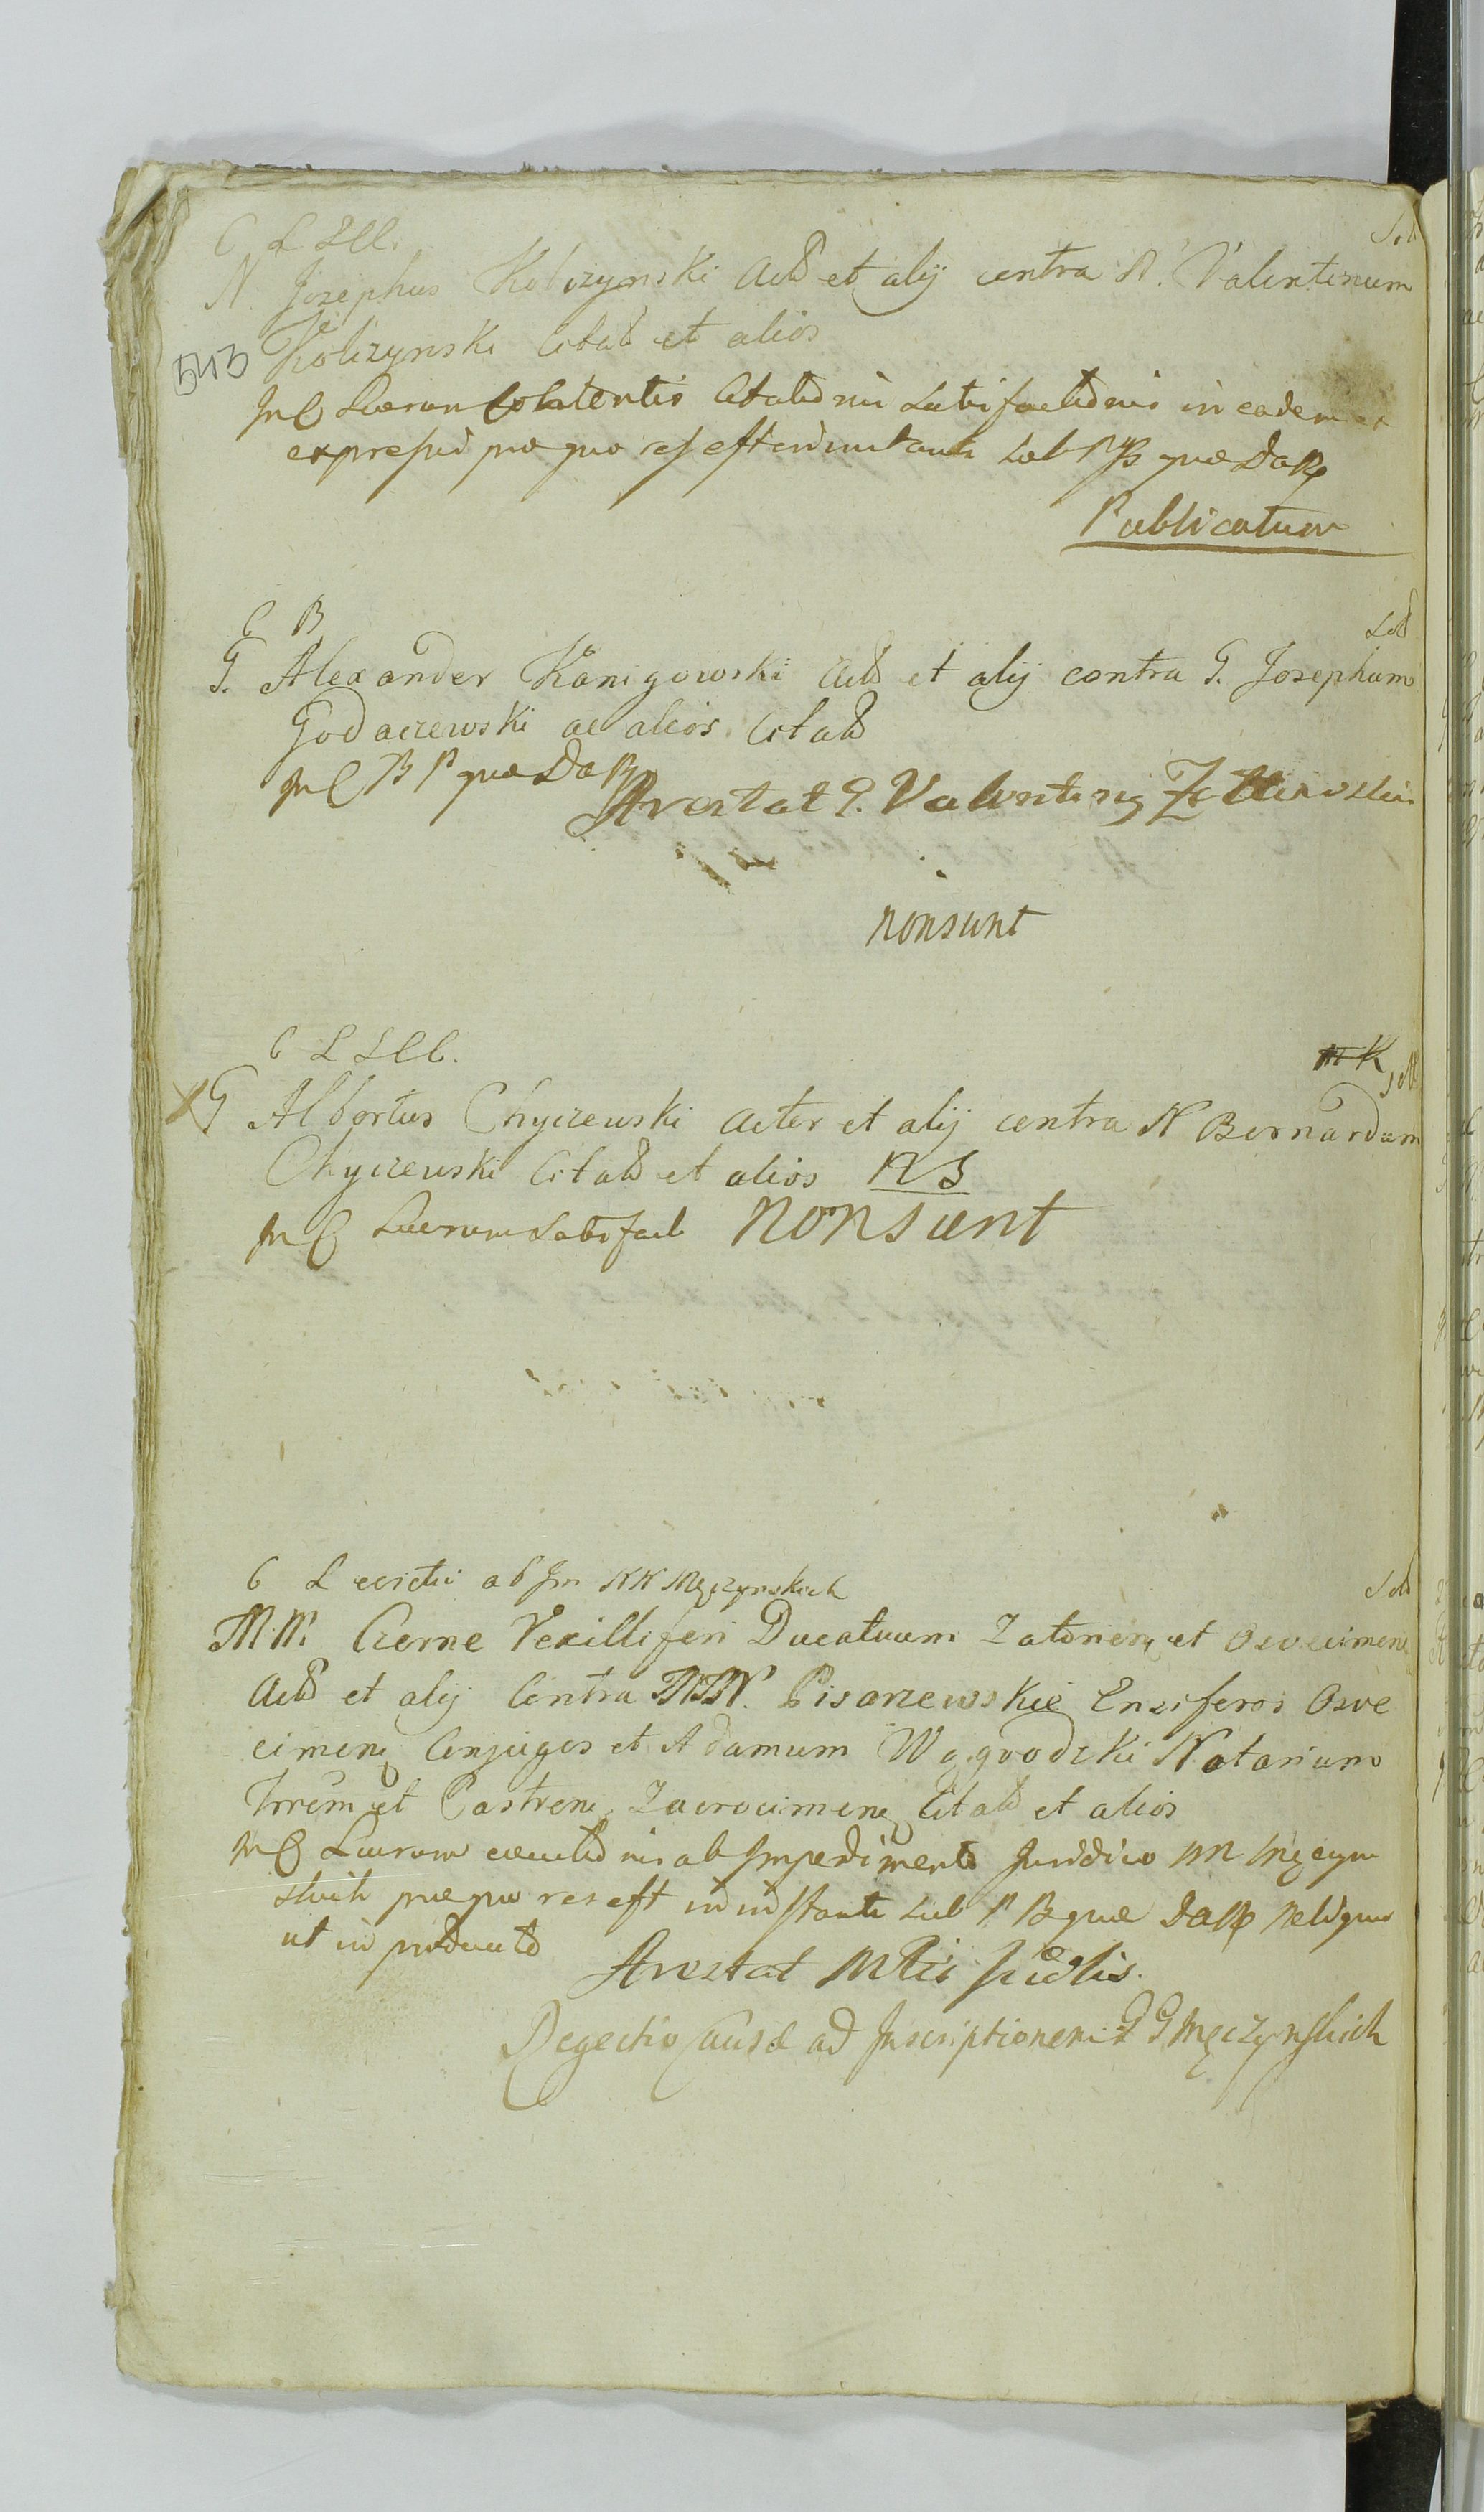 C L
Sol
N. Josephus Kobrzynski Actor et alij contra N. Valentinum
543 Kobrzynski Citat et alios
In C Lucrum Contentis Citationis Satisfactionis in eadem
expressis pro quo res est in instanti sub P B quae DaR
Publicatum
C B
Sol
G. Alexander Kanigowski Act et alij contra G. Josephum
Godaczewski ac alios Citat
In C B P quae DaR
Arestat G. Valentinus
nonsunt
C L
m K Sol
XG Albertus Chyczewski Actor et alij contra N Bernardum
Chyczewski Citat et alios NS
In C Lucrum Satisfact nonsunt
C L evictii ab Jm NN Męczynskich
Sol
M.M. Czerne Vexilliferi Ducatuum Zatoriens et Osvecimens
Act et alij Contra MM. Pisarzewskie Ensiferos Osve
cimens Conjuges et Adamum Wągrodzki Notarium
Trrem et Castrens Zacrocimens Citat et alios
In C Lucrum evictionis ab Impedimento Juridico NN Męczyn
skich pro quo res est in instanti sub P B quae DaR reliquo
ut in producto
Arestat
Regectio Causae ad Inscriptionem GG Męczynskich